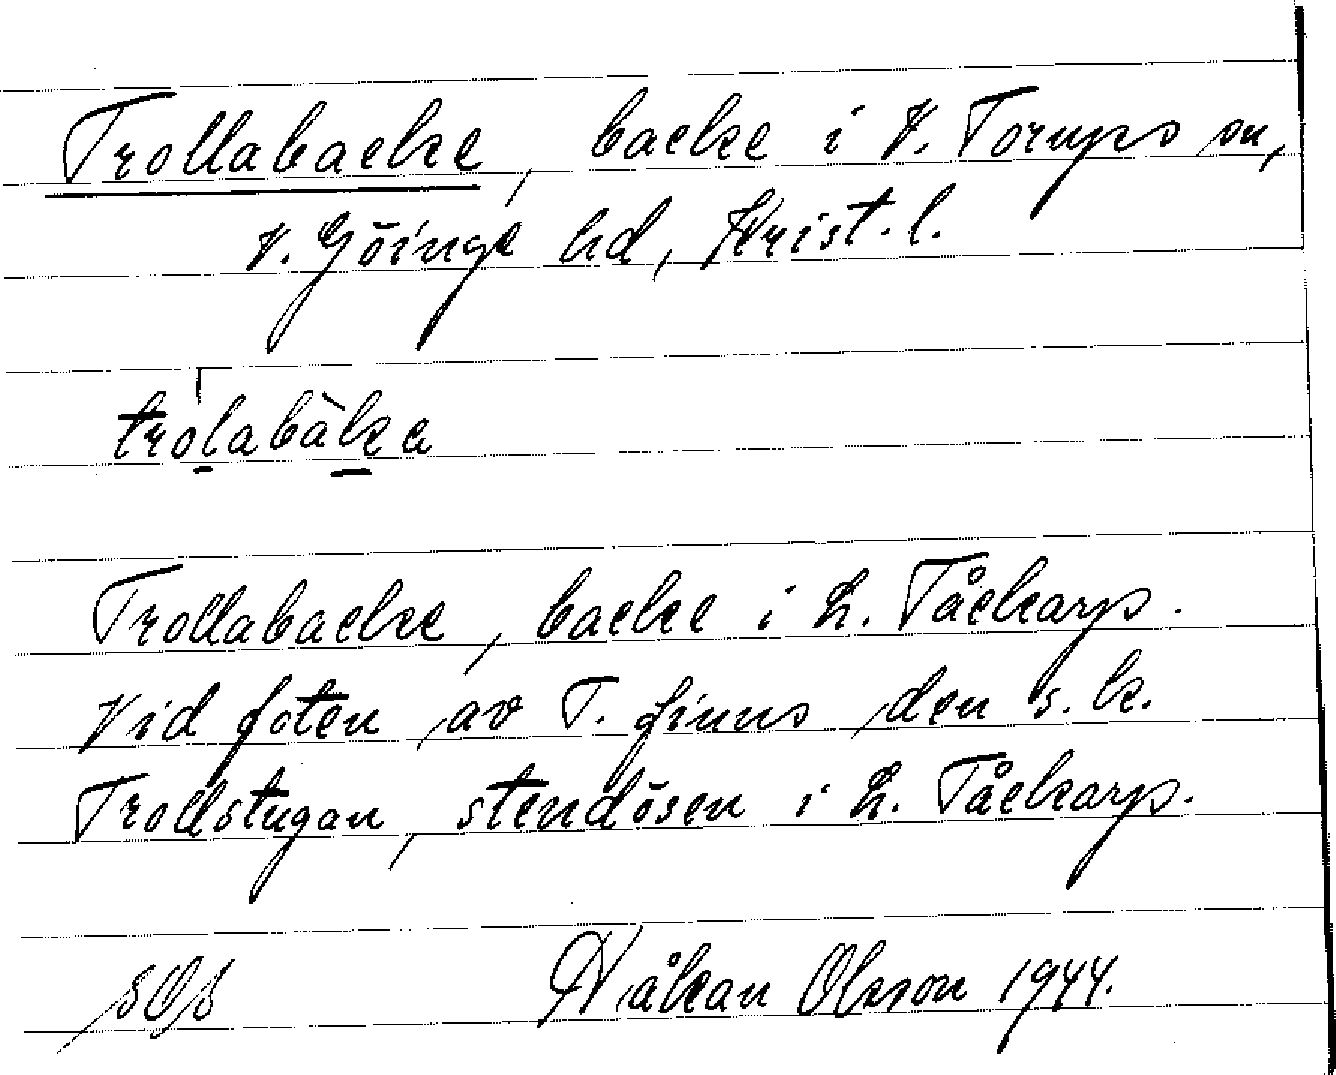 Trollabacke, backe i V. Torups sn,
V. Göinge hd, Krist. l.
trolabàka
Trollabacke, backe i L. Tåckarp.
Vid foten av T. finns den s. k.
Trollstugan, stendösen i L. Tåckarp.
Håkan Olsson 1944.